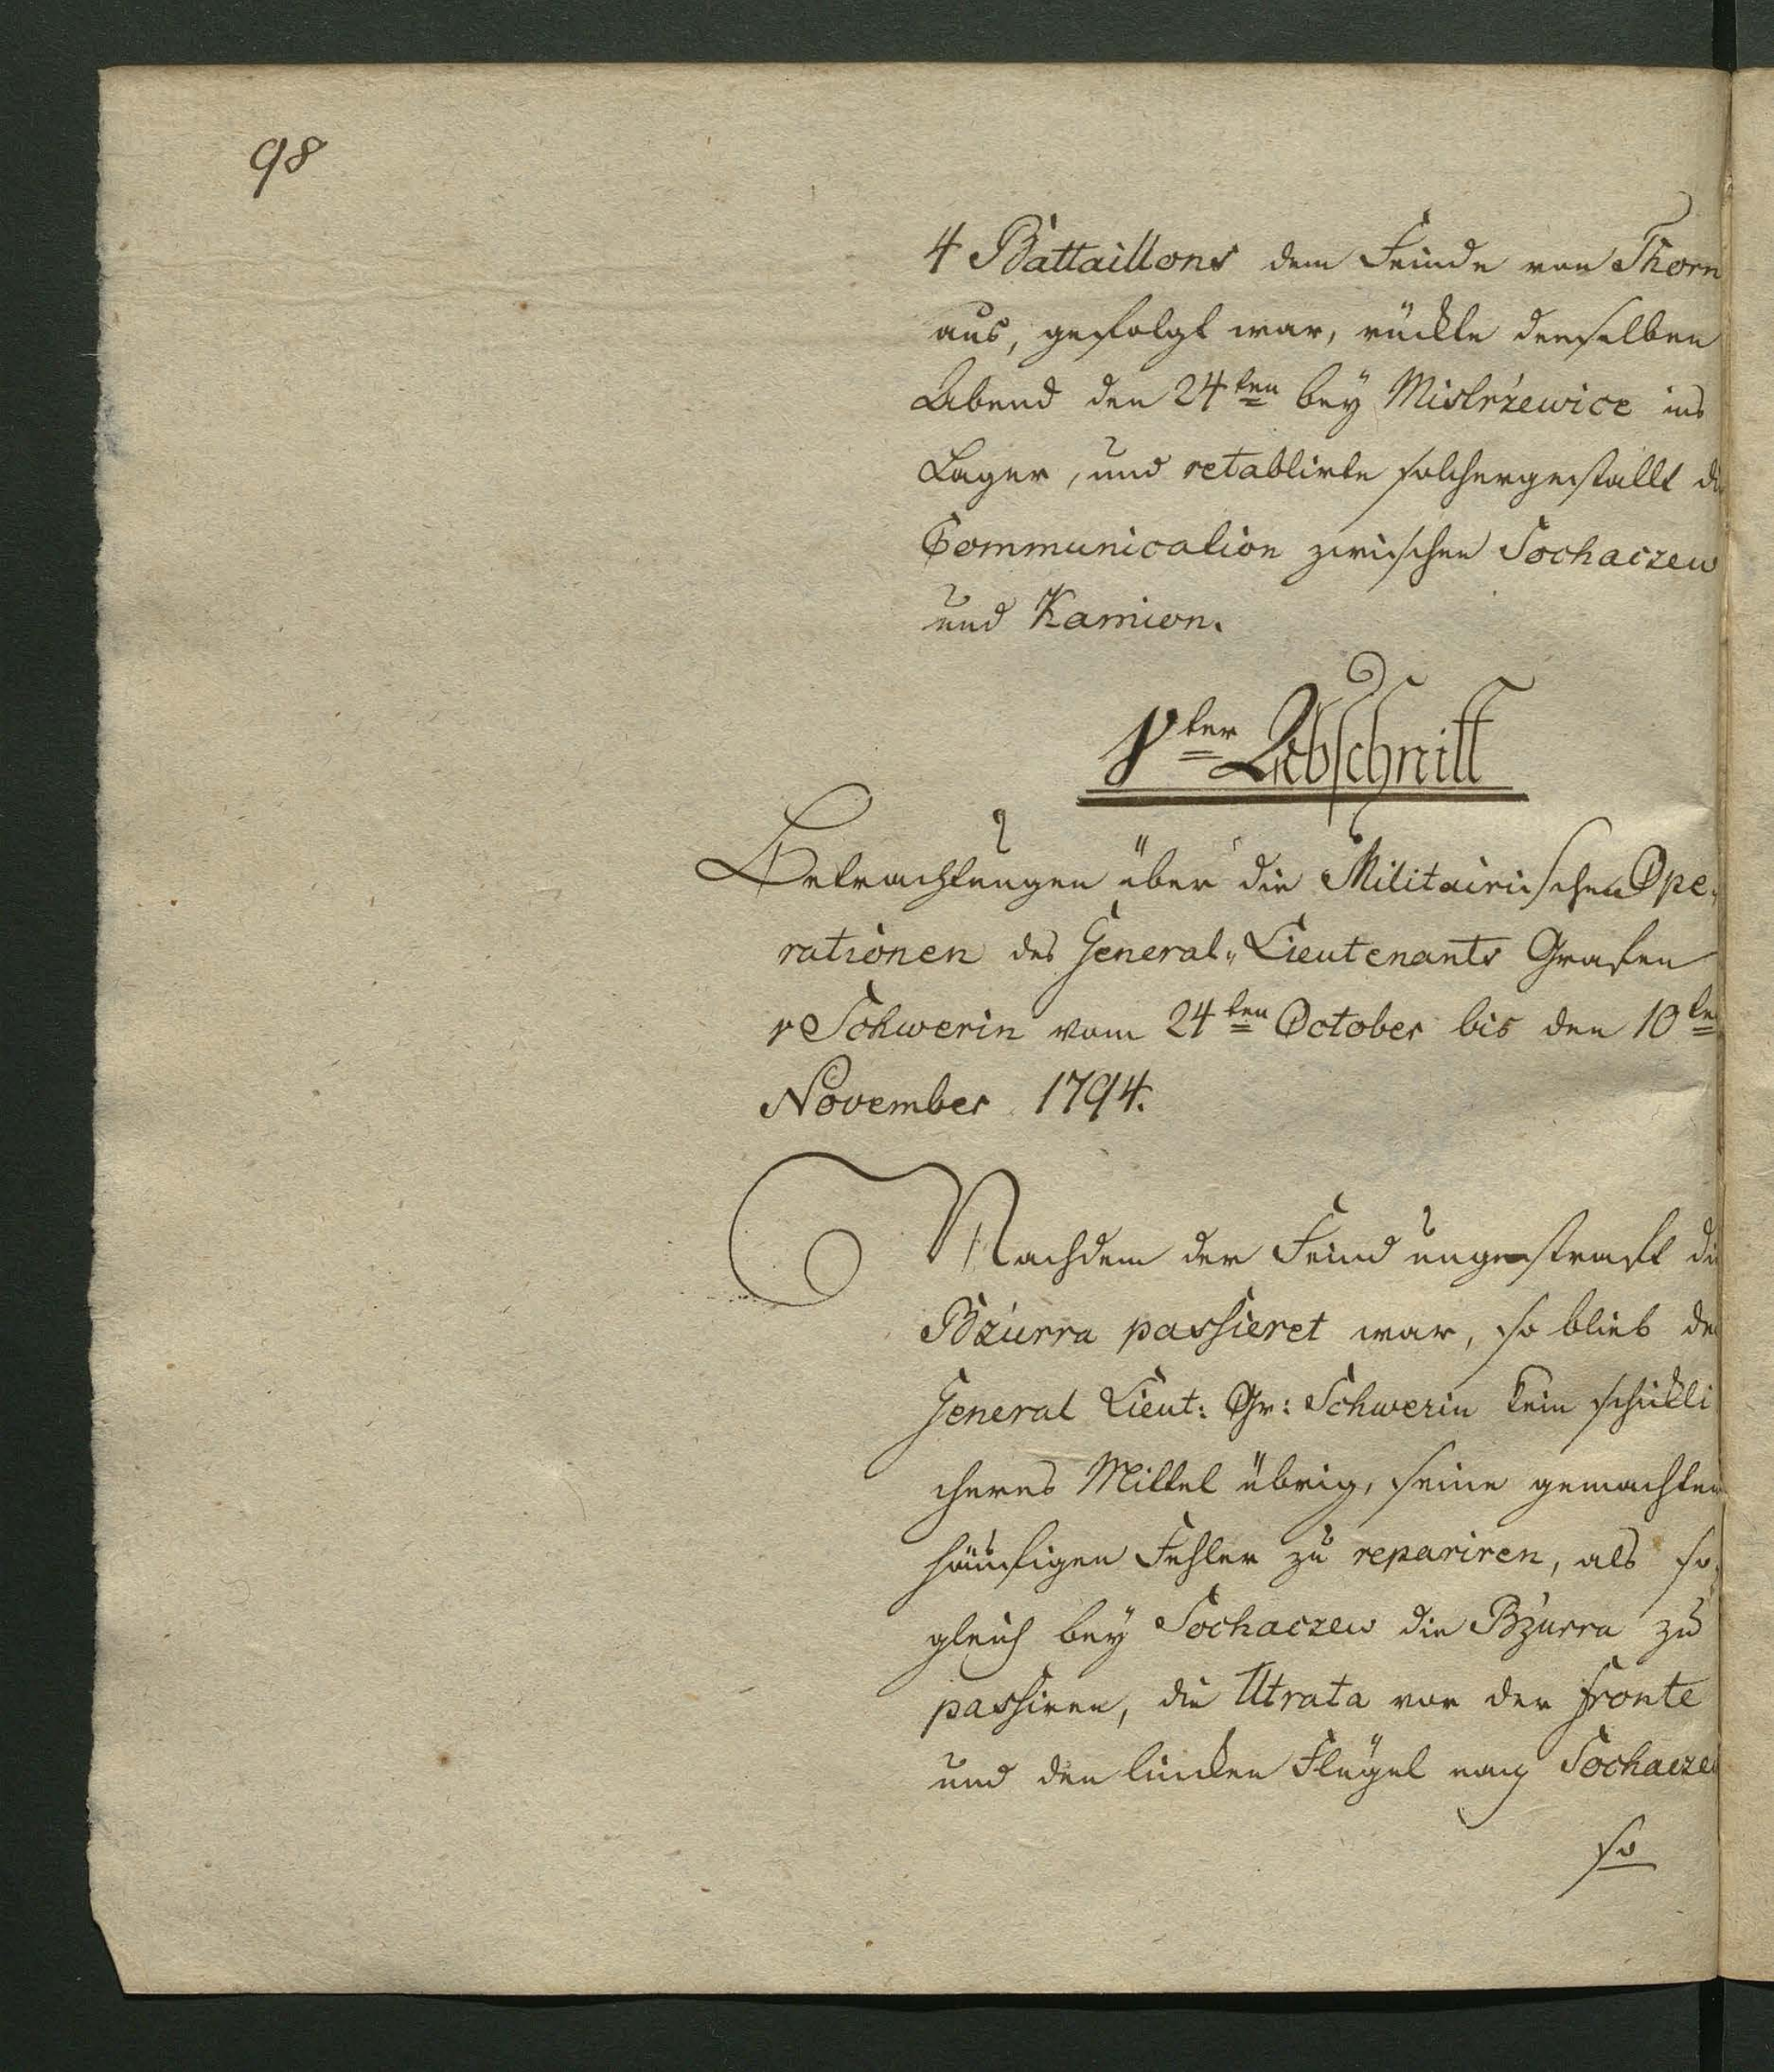 98
4 Battaillons dem Feinde von Thorn
aus, gefolgt war, rückte denselben
Abend den 24ten bey Mistrzewice ins
Lager, und retablirte solchergestallt di
Communication zwischen Sochaczew
und Kamion.
Vter Abschnitt
Betrachtungen über die Militairischen Ope-
rationen des General-Lieutenants Grafen
v Schwerin vom 24ten October bis den 10te
November 1794.
Nachdem der Feind ungestraft di
Bzurra passieret war, so blieb de
General Lieut: Gr: Schwerin kein schickli
cheres Mittel übrig, seine gemachten
häufigen Fehler zu repariren, als so-
gleich bey Sochaczew die Bzurra zu
passiren, die Utrata vor der Fronte
und den lincken Flügel nach Sochacze
so